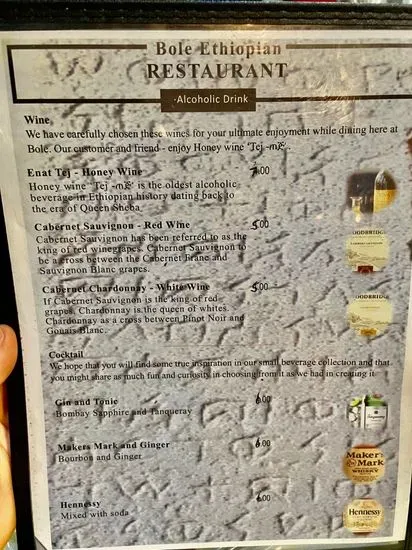 Bole Ethiopian
RESTAURANT
Alcoholic Drink
Wine
We have carefully chosen these wines for your ultimate enjoyment while dining here at
Bole. Our customer and friend - enjoy Honey wine "Tej -ጠጅ".
Enat Tej - Honey Wine 7.00
Honey wine "Tej -ጠጅ" is the oldest alcoholic
beverage in Ethiopian history dating back to
the era of Queen Sheba.
Cabernet Sauvignon - Red Wine 5.00
Cabernet Sauvignon has been referred to as the
king of red winegrapes. Cabernet Sauvignon to
be a cross between the Cabernet Franc and
Sauvignon Blanc grapes.
WOODBRIDGE
Cabernet Chardonnay - White Wine 5.00
If Cabernet Sauvignon is the king of red
grapes. Chardonnay is the queen of whites.
Chardonnay as a cross between Pinot Noir and
Gouais Blanc.
WOODBRIDGE
Cocktail
We hope that you will find some true inspiration in our small beverage collection and that
you might share as much fun and curiosity in choosing from it as we had in creating it
Gin and Tonic 6.00
Bombay Sapphire and Tanqueray
Makers Mark and Ginger 6.00
Bourbon and Ginger
Maker's
Mark
WHISKY
Hennessy 6.00
Mixed with soda
Hennessy